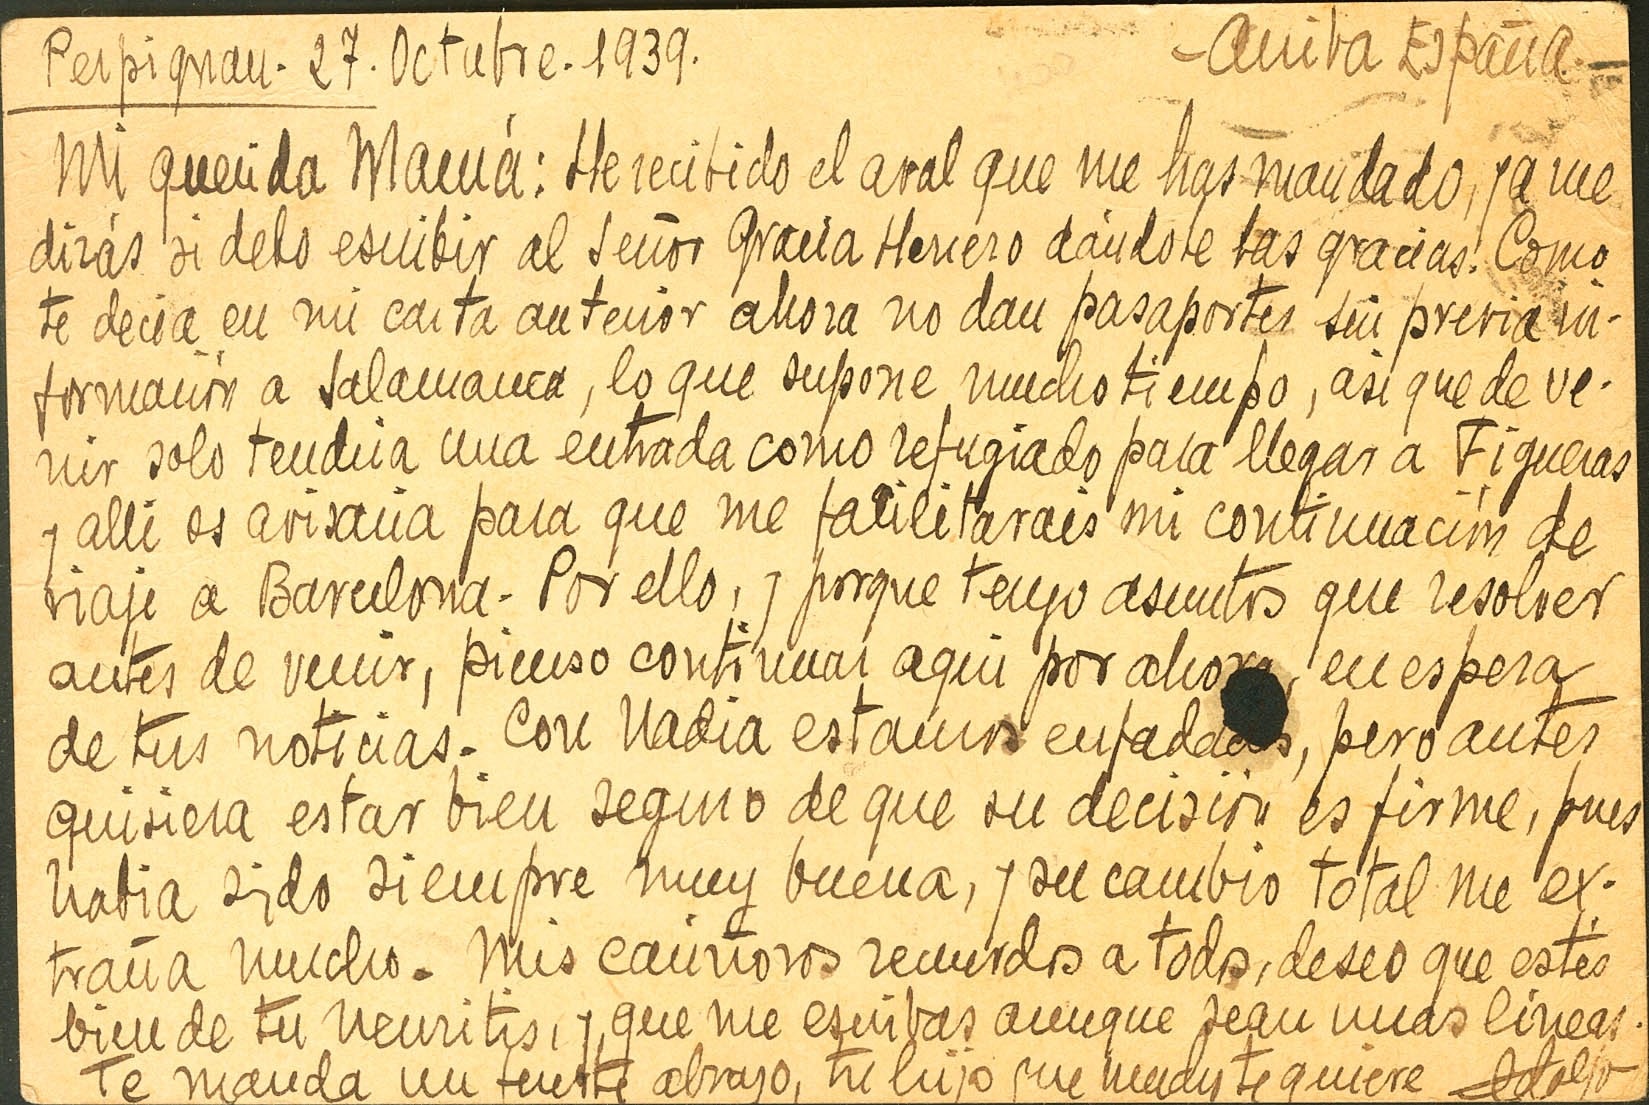 Perpignan. 27. Octubre. 1939. -Arriba España.-
Mi querida Mamá: He recibido el aval que me has mandado, ya me
dirás si debo escribir al Señor Gracia Herrero dándole las gracias. Como
te decia en mi carta anterior ahora no dan pasaportes sin previa in-
formación a Salamanca, lo que supone mucho tiempo, asi que de ve-
nir solo tendria una entrada como refugiado para llegar a Figueras
y alli os avisaria para que me facilitarais mi continuación de
viaje a Barcelona. Por ello, y porque tengo asuntos que resolver
antes de venir, pienso continuar aqui por ahora, en espera
de tus noticias. Con Nadia estamos enfadados, pero antes
quisiera estar bien seguro de que su decisión es firme, pues
habia sido siempre muy buena, y su cambio total me ex-
traña mucho. Mis cariñosos recuerdos a todos, deseo que estés
bien de tu neuritis, y que me escribas aunque sean unas lineas.
Te manda un fuerte abrazo, tu hijo que mucho te quiere Adolfo